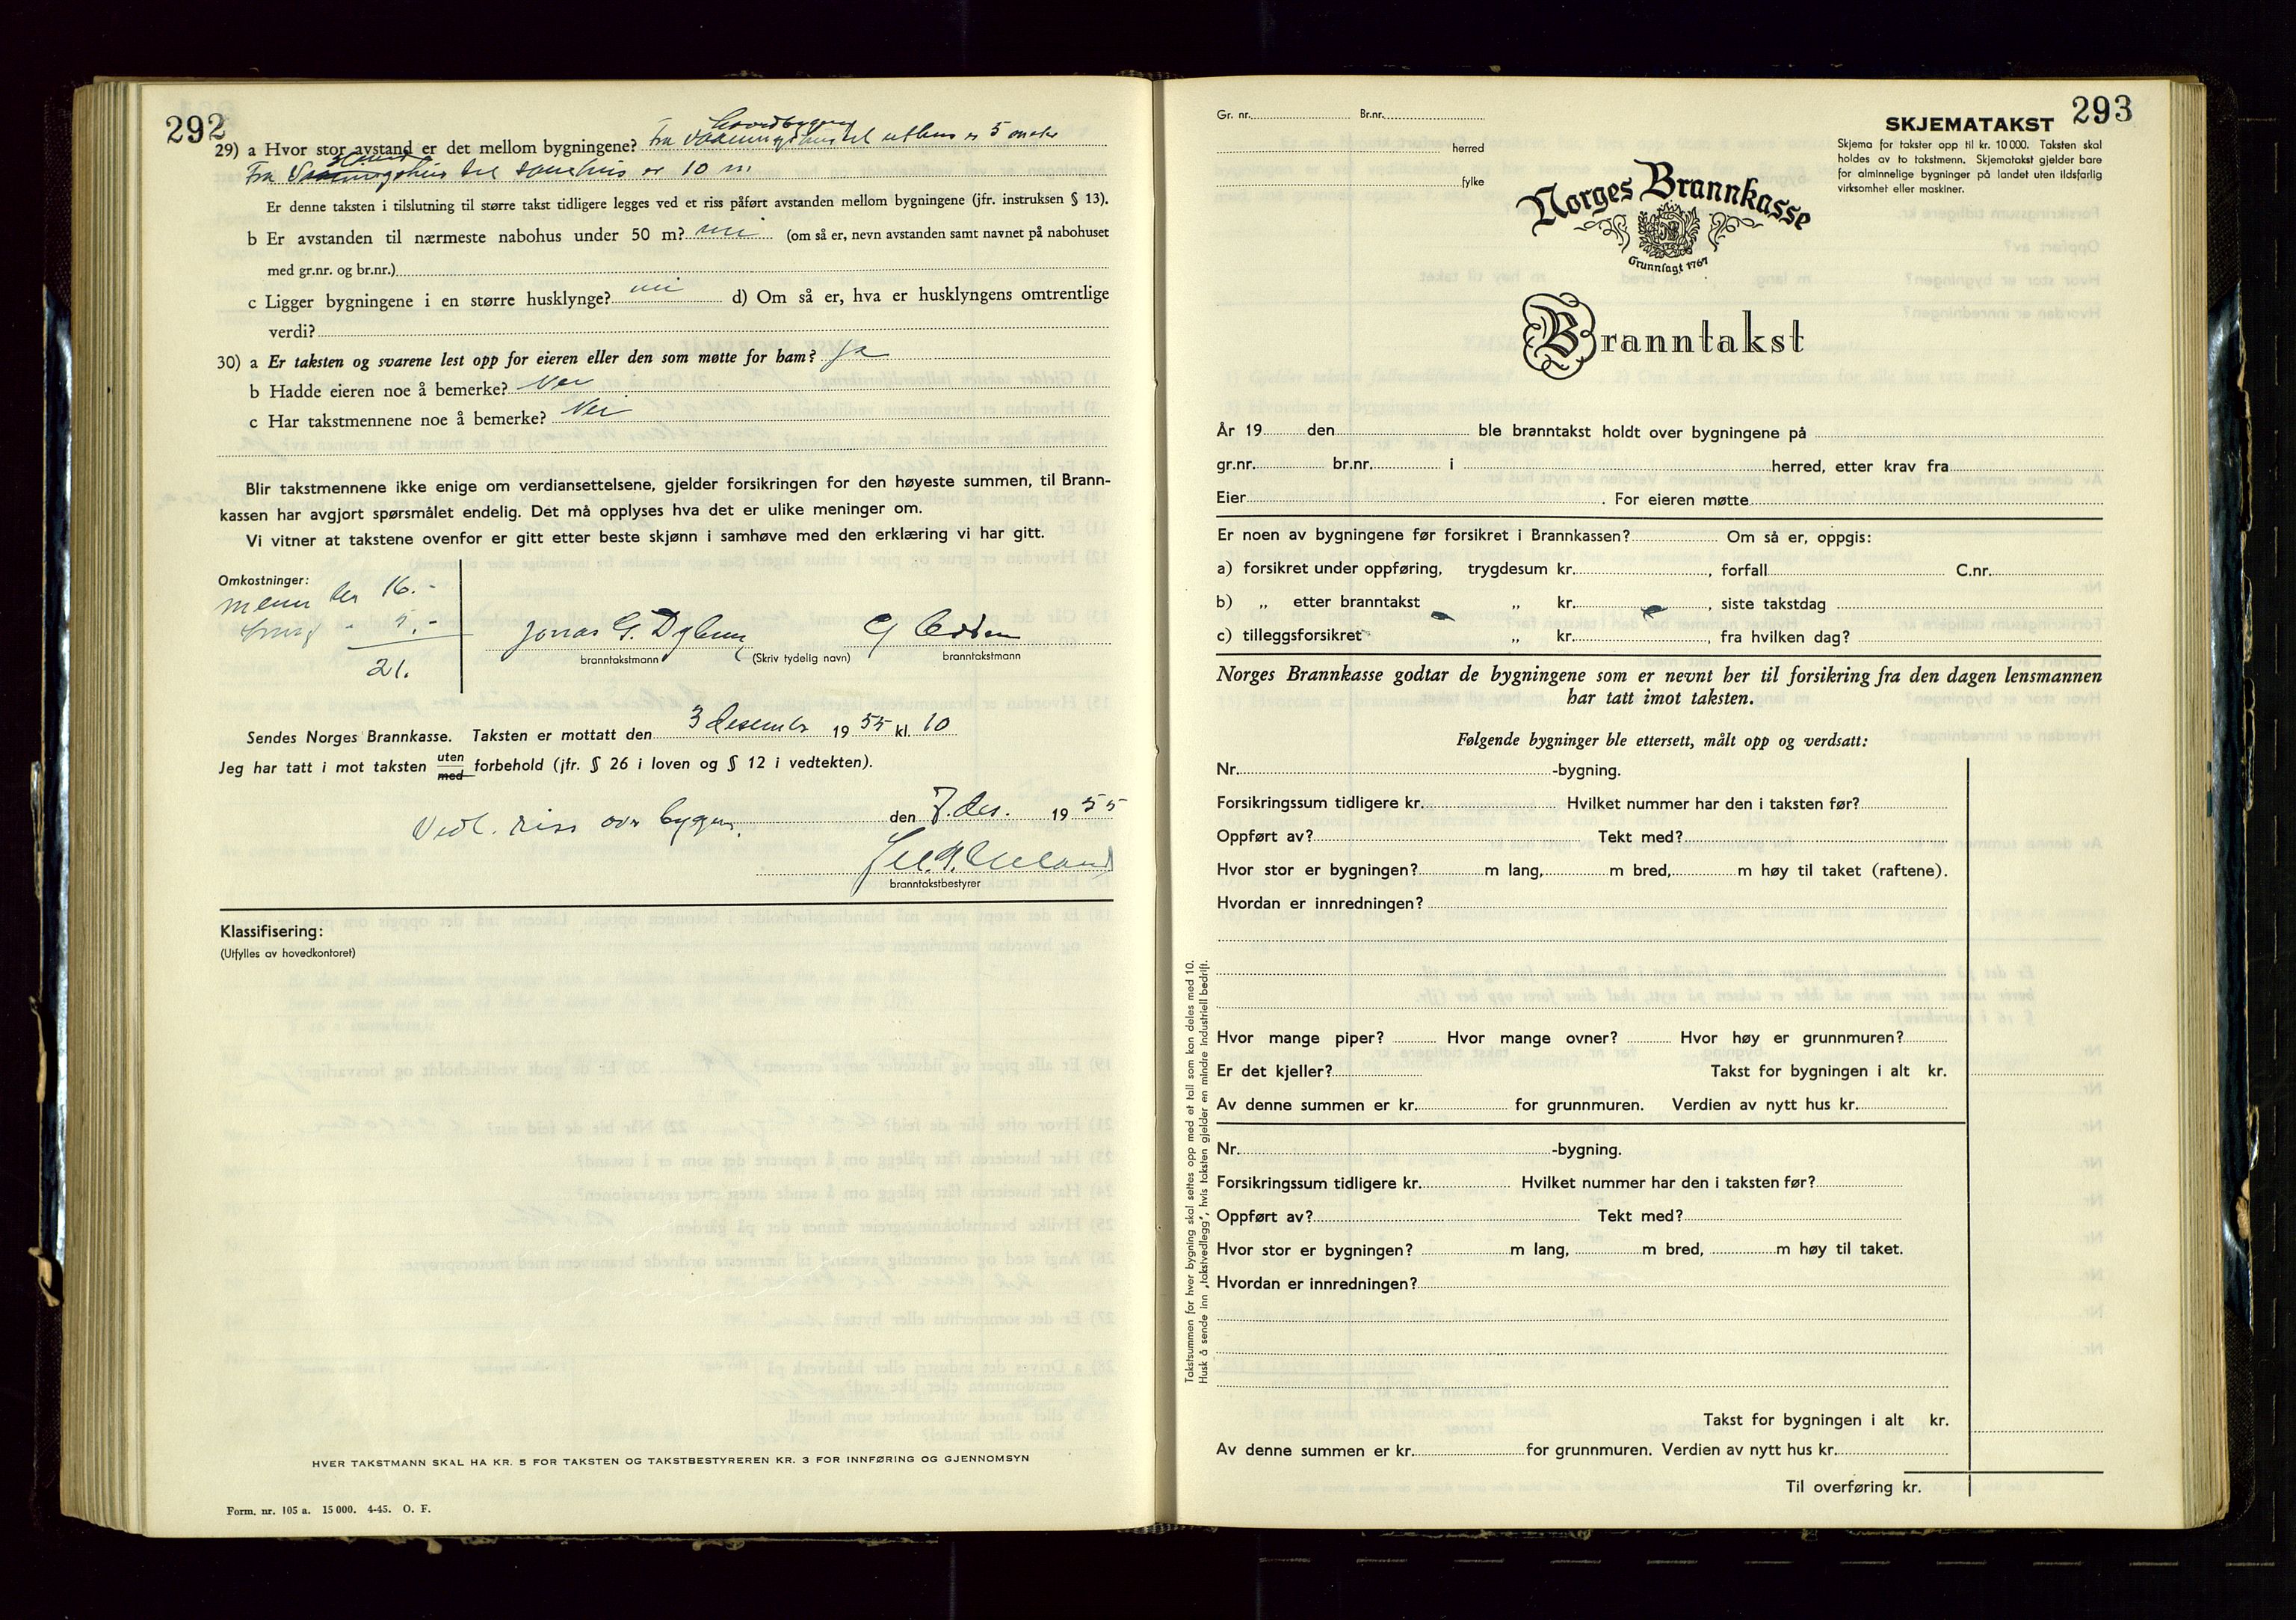 292
29) a Hvor stor avstand er det mellom bygningene? Fra til uthus er 5 meter
Fra til er 10 m
Er denne taksten i tilslutning til større takst tidligere legges ved et riss påført avstanden mellom bygningene (jfr. instruksen § 13).
b Er avstanden til nærmeste nabohus under 50 m? nei (om så er, nevn avstanden samt navnet på nabohuset
med gr.nr. og br.nr.)
c Ligger bygningene i en større husklynge? nei d) Om så er, hva er husklyngens omtrentlige
verdi?
30) a Er taksten og svarene lest opp for eieren eller den som møtte for ham? Ja
b Hadde eieren noe å bemerke? Nei
c Har takstmennene noe å bemerke? Nei
Blir takstmennene ikke enige om verdiansettelsene, gjelder forsikringen for den høyeste summen, til Brann-
kassen har avgjort spørsmålet endelig. Det må opplyses hva det er ulike meninger om.
Vi vitner at takstene ovenfor er gitt etter beste skjønn i samhøve med den erklæring vi har gitt.
Omkostninger:
menn kr 16.-
- 5.-
21.
Jonas G.
branntakstmann (Skriv tydelig navn) branntakstmann
Sendes Norges Brannkasse. Taksten er mottatt den 3 desember 1955 kl. 10
Jeg har tatt i mot taksten uten med forbehold (jfr. § 26 i loven og § 12 i vedtekten).
Vedl. riss over bygen. den 7. des. 1955
branntakstbestyrer
Klassifisering:
(Utfylles av hovedkontoret)
HVER TAKSTMANN SKAL HA KR. 5 FOR TAKSTEN OG TAKSTBESTYREREN KR. 3 FOR INNFØRING OG GJENNOMSYN
Form. nr. 105 a. 15 000. 4-45. O. F.
293
Gr. nr. Br.nr.
herred
fylke
SKJEMATAKST
Skjema for takster opp til kr. 10 000. Taksten skal
holdes av to takstmenn. Skjematakst gjelder bare
for alminnelige bygninger på landet uten ildsfarlig
virksomhet eller maskiner.
Norges Brannkasse
Grunnlagt 1767
Branntakst
År 19 den ble branntakst holdt over bygningene på
gr.nr. br.nr. i herred, etter krav fra
Eier . For eieren møtte
Er noen av bygningene før forsikret i Brannkassen? Om så er, oppgis:
a) forsikret under oppføring, trygdesum kr. , forfall C.nr.
b) „ etter branntakst „ kr. , siste takstdag
c) tilleggsforsikret „ kr. , fra hvilken dag?
Norges Brannkasse godtar de bygningene som er nevnt her til forsikring fra den dagen lensmannen
har tatt imot taksten.
Følgende bygninger ble ettersett, målt opp og verdsatt:
Nr. -bygning.
Forsikringssum tidligere kr. Hvilket nummer har den i taksten før?
Oppført av? Tekt med?
Hvor stor er bygningen? m lang, m bred, m høy til taket (raftene).
Hvordan er innredningen?
Hvor mange piper? Hvor mange ovner? Hvor høy er grunnmuren?
Er det kjeller? Takst for bygningen i alt kr.
Av denne summen er kr. for grunnmuren. Verdien av nytt hus kr.
Nr. -bygning.
Forsikringssum tidligere kr. Hvilket nummer har den i taksten før?
Oppført av? Tekt med?
Hvor stor er bygningen? m lang, m bred, m høy til taket.
Hvordan er innredningen?
Takst for bygningen i alt kr.
Av denne summen er kr. for grunnmuren. Verdien av nytt hus kr.
Til overføring kr.
Takstsummen for hver bygning skal settes opp med et tall som kan deles med 10.
Husk å sende inn „takstvedlegg“, hvis taksten gjelder en mindre industriell bedrift.